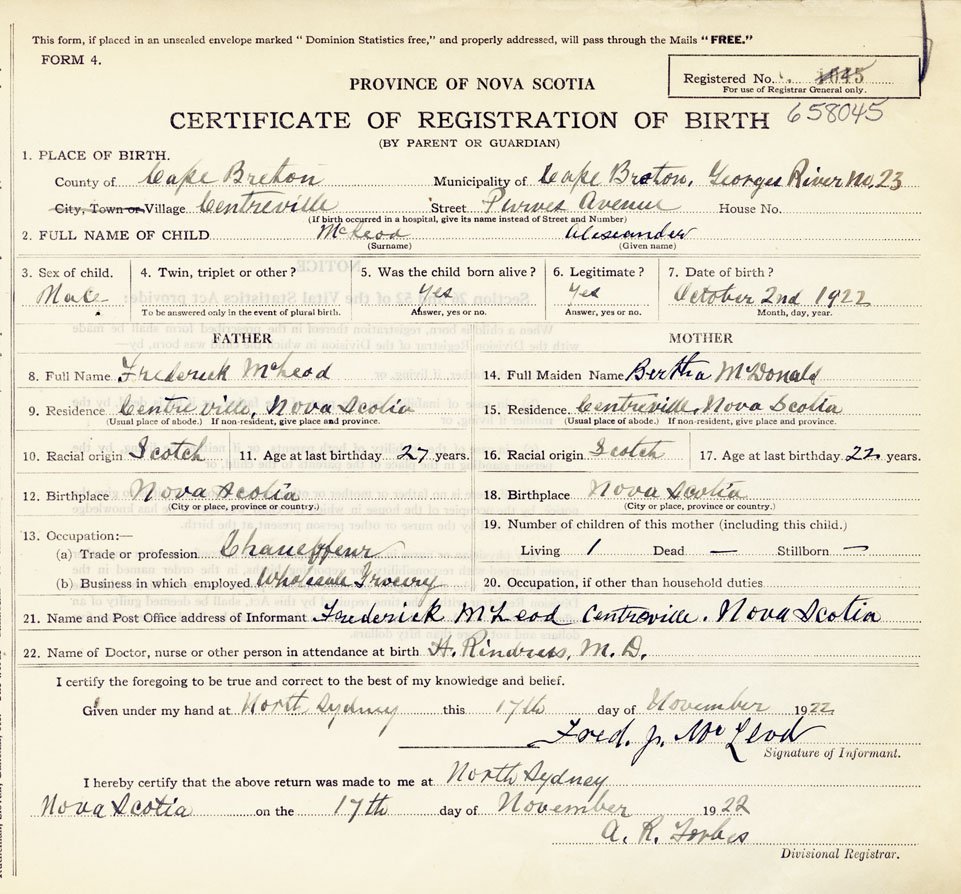 This form, if placed in an unsealed envelope marked “ Dominion Statistics free,” and properly addressed, will pass through the Mails “FREE.”
FORM 4.
Registered No. 1045
For use of Registrar General only.
PROVINCE OF NOVA SCOTIA
658045
CERTIFICATE OF REGISTRATION OF BIRTH
(BY PARENT OR GUARDIAN)
1. PLACE OF BIRTH.
County of Cape Breton Municipality of Cape Breton, Georges River No. 23
City, Town or Village Centreville Street Purves Avenue House No.
(If birth occurred in a hospital, give its name instead of Street and Number)
2. FULL NAME OF CHILD McLeod Alexander
(Surname) (Given name)
3. Sex of child. 4. Twin, triplet or other? 5. Was the child born alive? 6. Legitimate? 7. Date of birth?
Male Yes Yes October 2nd 1922
To be answered only in the event of plural birth. Answer, yes or no. Answer, yes or no. Month, day, year.
FATHER MOTHER
8. Full Name Frederick McLeod 14. Full Maiden Name Bertha McDonald
9. Residence Centreville, Nova Scotia 15. Residence. Centreville, Nova Scotia
(Usual place of abode.) If non-resident, give place and province. (Usual place of abode.) If non-resident, give place and province.
10. Racial origin Scotch 11. Age at last birthday 27 years. 16. Racial origin Scotch 17. Age at last birthday 22 years.
12. Birthplace Nova Scotia 18. Birthplace Nova Scotia
(City or place, province or country.) (City or place, province or country.)
19. Number of children of this mother (including this child.)
13. Occupation:—
(a) Trade or profession Chaueffeur Living 1 Dead — Stillborn —
(b) Business in which employed Wholesale Grocery 20. Occupation, if other than household duties
21. Name and Post Office address of Informant Frederick McLeod Centreville. Nova Scotia
22. Name of Doctor, nurse or other person in attendance at birth H. M. D.
I certify the foregoing to be true and correct to the best of my knowledge and belief.
Given under my hand at North Sydney this 17th day of November 1922
Fred. J. McLeod
Signature of Informant.
I hereby certify that the above return was made to me at North Sydney
Nova Scotia on the 17th day of November 1922
A. R. Forbes
Divisional Registrar.